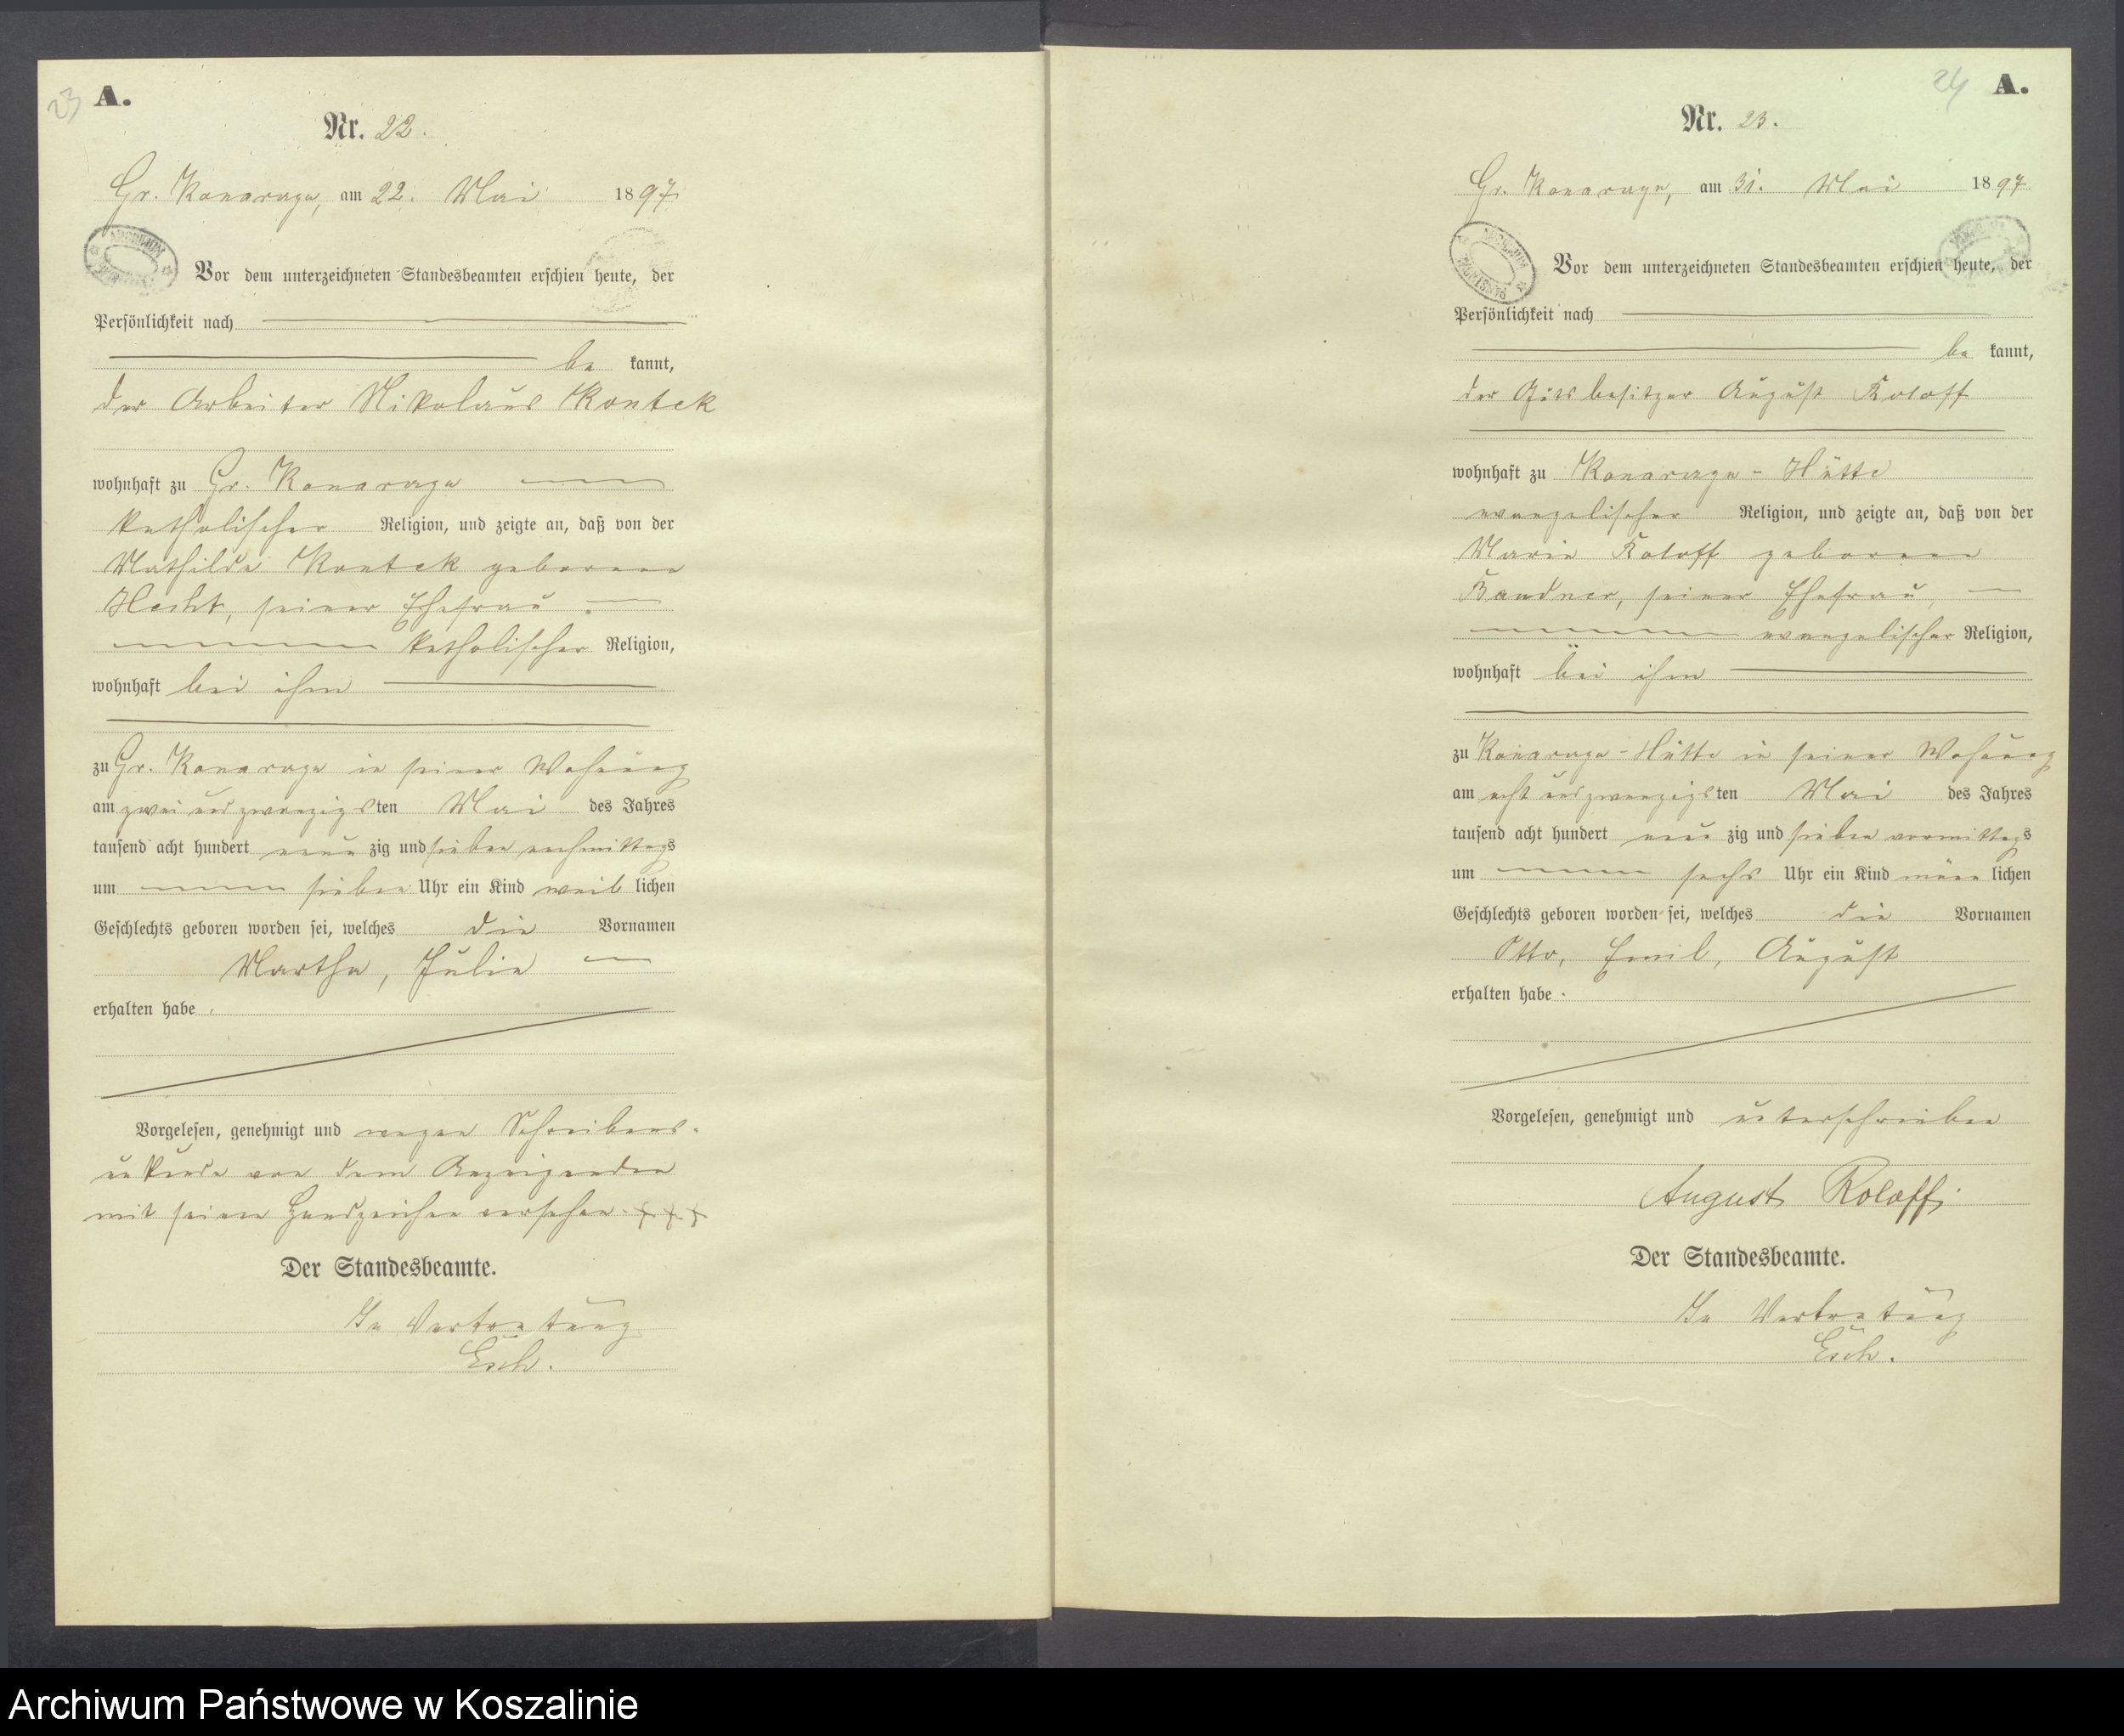 23
A.
Nr. 22.
Gr. Konarzyn, am 22. Mai 1897
Vor dem unterzeichneten Standesbeamten erschien heute, der
Persönlichkeit nach
be kannt,
der Arbeiter Nikolaus Kontek
wohnhaft zu Gr. Konarzyn
katholischer Religion, und zeigte an, daß von der
Mathilde Kontek geborenen
Hecht, seiner Ehefrau
katholischer Religion,
wohnhaft bei ihm
zu Gr. Konarzyn in seiner Wohnung
am zwei und zwanzigsten Mai des Jahres
tausend acht hundert neun zig und sieben nachmittags
um sieben Uhr ein Kind weib lichen
Geschlechts geboren worden sei, welches die Vornamen
Martha, Julie
erhalten habe.
Vorgelesen, genehmigt und wegen Schreibens-
unkunde von dem Anzeigenden
mit seinem Handzeichen versehen. +++
Der Standesbeamte.
In Vertretung
Esch.
24
A.
Nr. 23.
Gr. Konarzyn, am 31. Mai 1897
Vor dem unterzeichneten Standesbeamten erschien heute, der
Persönlichkeit nach
be kannt,
der Gutsbesitzer August Roloff
wohnhaft zu Konarzyn-Hütte
evangelischer Religion, und zeigte an, daß von der
Marie Roloff geborenen
seiner Ehefrau,
evangelischer Religion,
wohnhaft bei ihm
zu Konarzyn-Hütte in seiner Wohnung
am acht und zwanzigsten Mai des Jahres
tausend acht hundert neun zig und sieben vormittags
um sechs Uhr ein Kind männ lichen
Geschlechts geboren worden sei, welches die Vornamen
Otto, Emil, August
erhalten habe.
Vorgelesen, genehmigt und unterschrieben
August Roloff.
Der Standesbeamte.
In Vertretung
Esch.
Archiwum Państwowe w Koszalinie